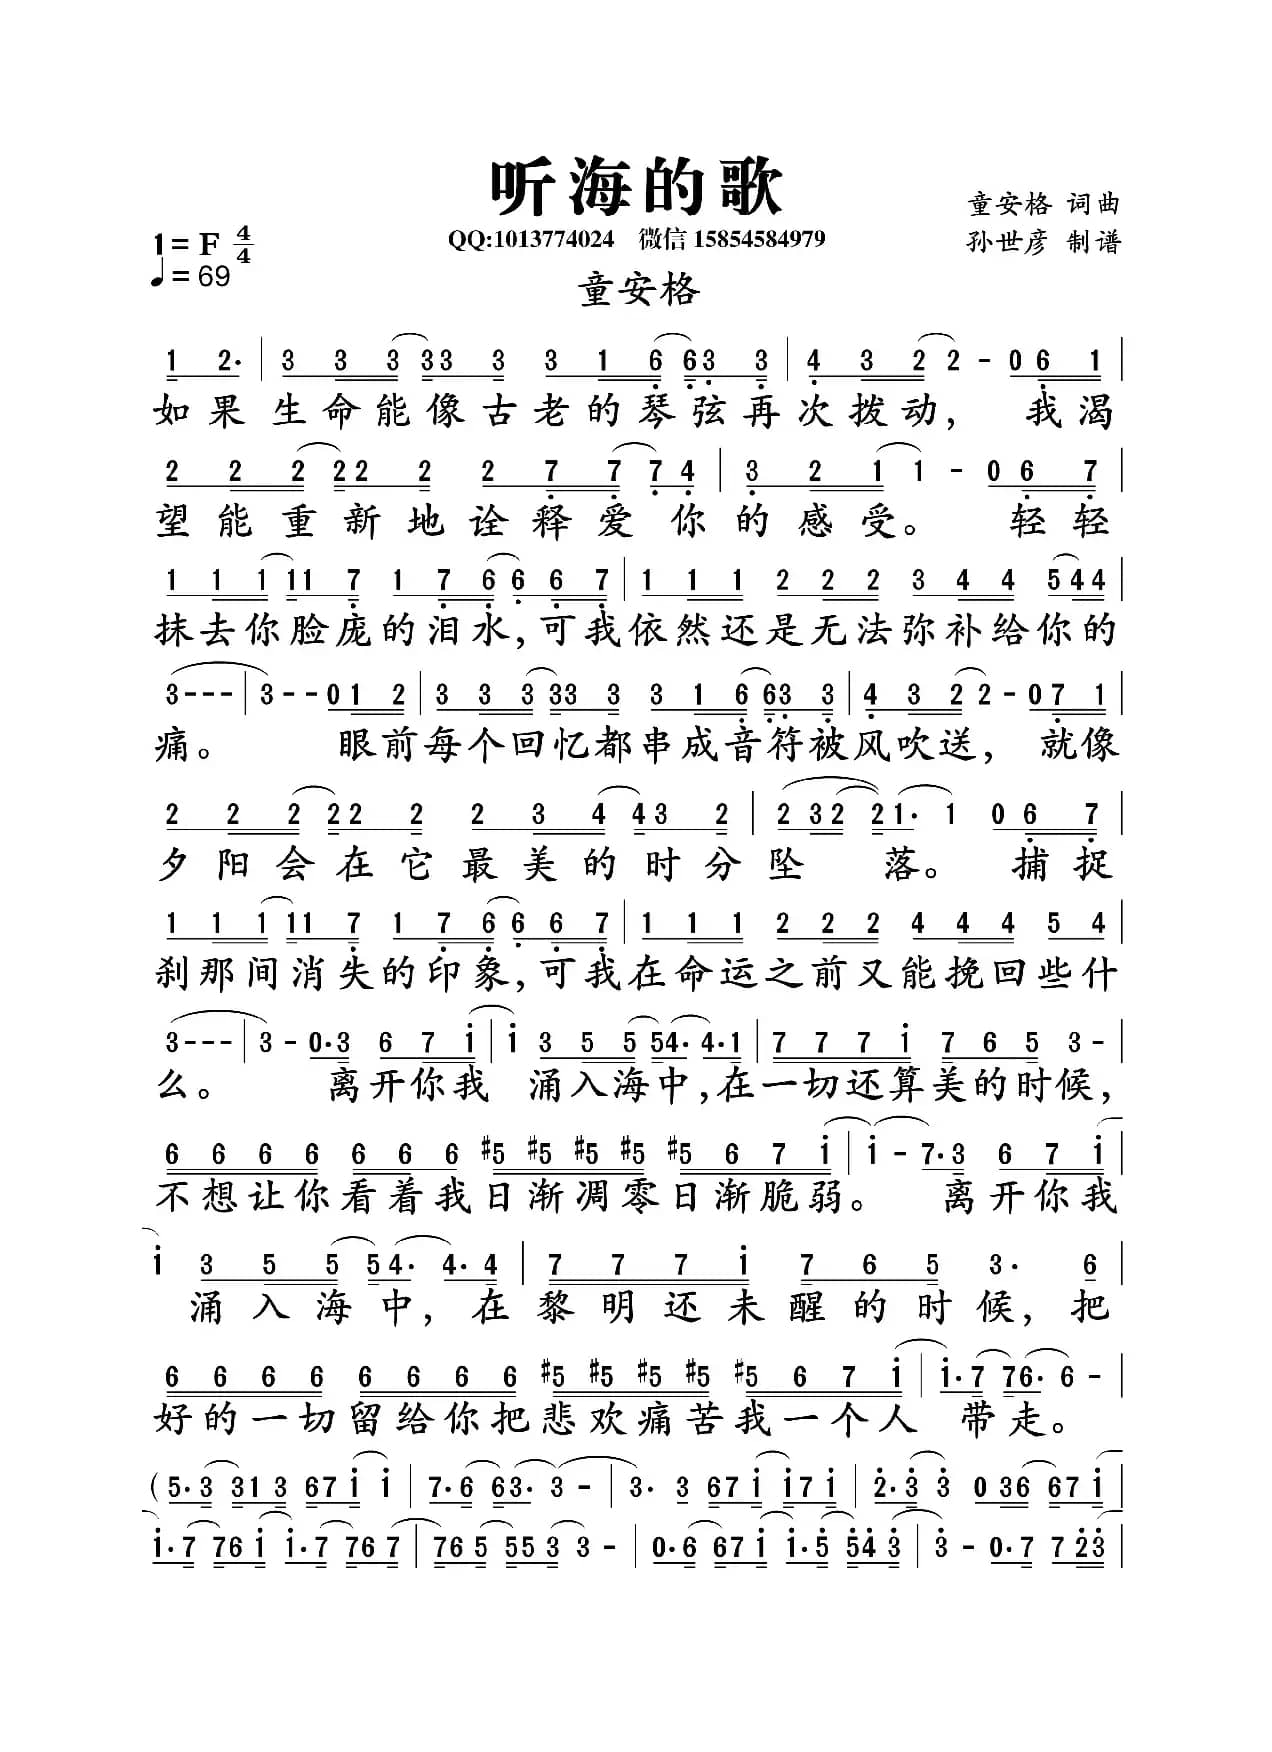 听海的歌
童安格 词曲
1=F 4/4
QQ:1013774024 微信 15854584979
孙世彦 制谱
♩=69
童安格
1 2· | 3 3 3 3 3 3 3 1 6 6 3 3 | 4 3 2 2 - 0 6 1 |
如果生命能像古老的琴弦再次拨动, 我渴
2 2 2 2 2 2 2 7 7 7 4 | 3 2 1 1 - 0 6 7 |
望能重新地诠释爱你的感受。 轻轻
1 1 1 1 1 7 1 7 6 6 6 7 | 1 1 1 2 2 2 3 4 4 5 4 4 |
抹去你脸庞的泪水,可我依然还是无法弥补给你的
3 - - - | 3 - - 0 1 2 | 3 3 3 3 3 3 3 1 6 6 3 3 | 4 3 2 2 - 0 7 1 |
痛。 眼前每个回忆都串成音符被风吹送, 就像
2 2 2 2 2 2 2 3 4 4 3 2 | 2 3 2 2 1· 1 0 6 7 |
夕阳会在它最美的时分坠 落。 捕捉
1 1 1 1 1 7 1 7 6 6 6 7 | 1 1 1 2 2 2 4 4 4 5 4 |
刹那间消失的印象,可我在命运之前又能挽回些什
3 - - - | 3 - 0·3 6 7 1 | 1 3 5 5 5 4· 4·1 | 7 7 7 1 7 6 5 3 -
么。 离开你我 涌入海中,在一切还算美的时候,
6 6 6 6 6 6 6 #5 #5 #5 #5 #5 6 7 1 | 1 - 7·3 6 7 1
不想让你看着我日渐凋零日渐脆弱。 离开你我
1 3 5 5 5 4· 4·4 | 7 7 7 1 7 6 5 3· 6 |
涌入海中,在黎明还未醒的时候,把
6 6 6 6 6 6 6 6 #5 #5 #5 #5 #5 6 7 1 | 1·7 7 6· 6 - |
好的一切留给你把悲欢痛苦我一个人 带走。
( 5·3 3 1 3 6 7 1 1 | 7·6 6 3· 3 - | 3· 3 6 7 1 1 7 1 | 2·3 3 0 3 6 6 7 1 |
1·7 7 6 1 1·7 7 6 7 | 7 6 5 5 5 3 3 - | 0·6 6 7 1 1·5 5 4 3 | 3 - 0·7 7 2 3 |